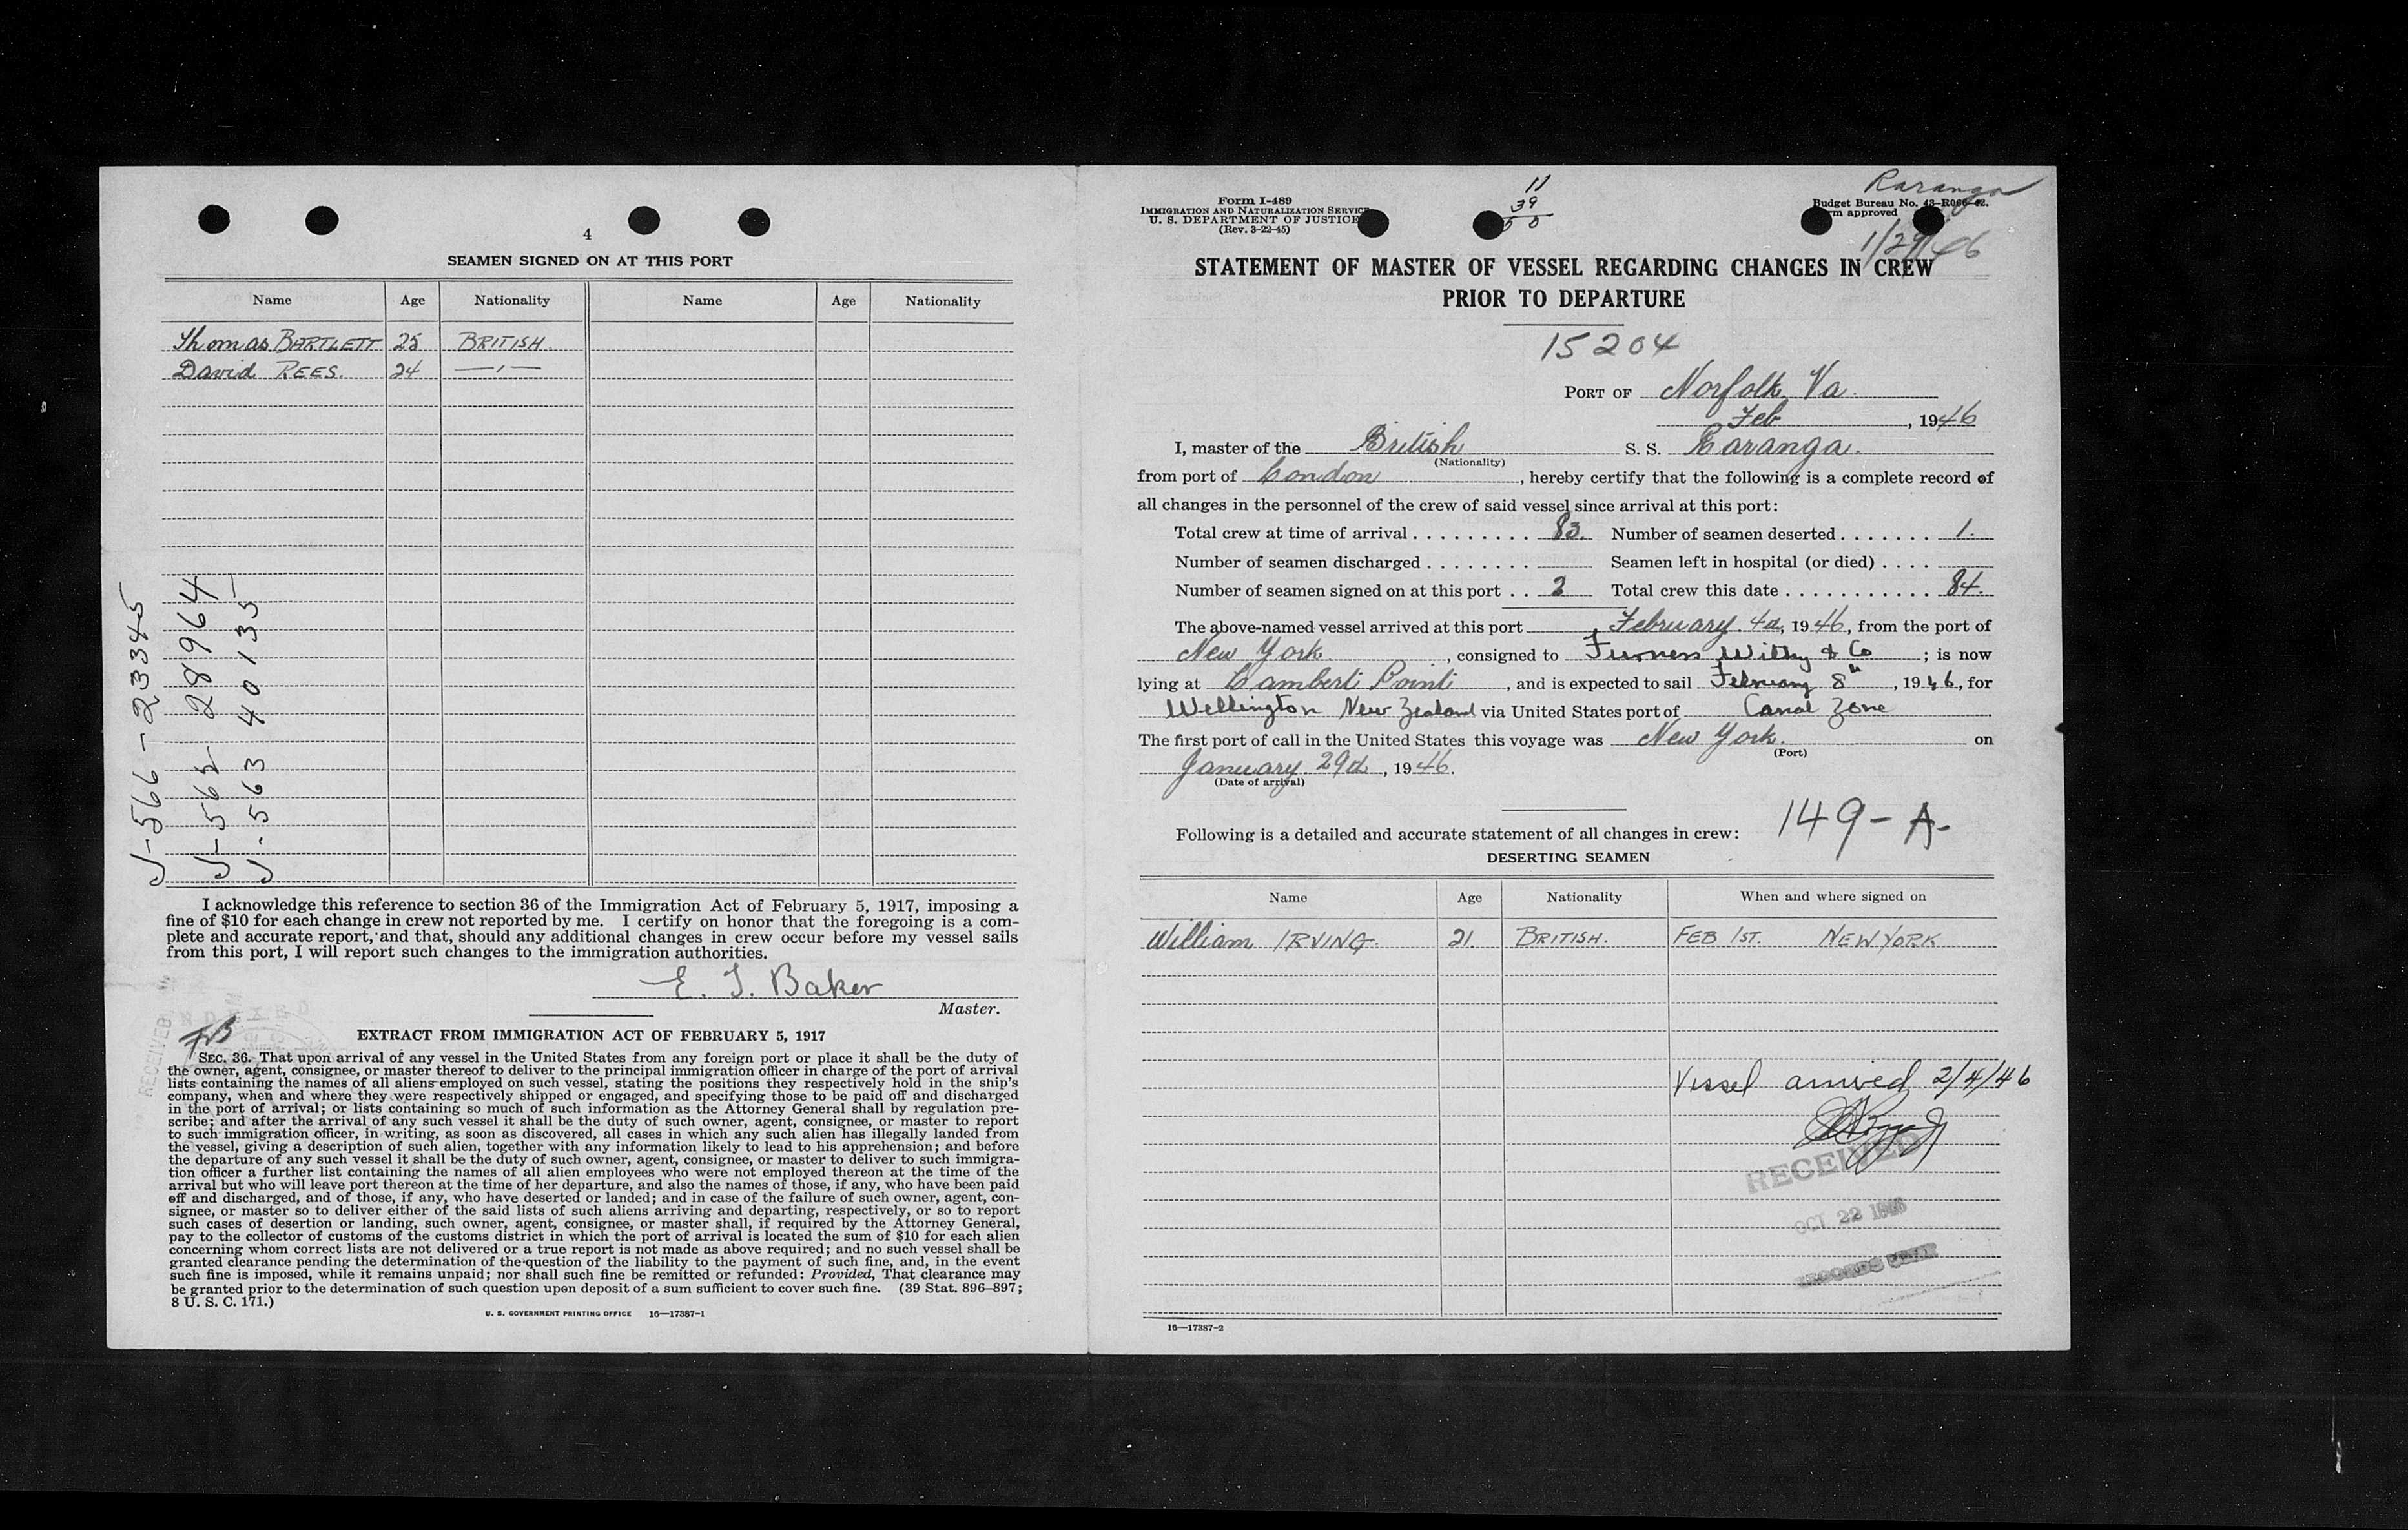 4
SEAMEN SIGNED ON AT THIS PORT
Name Age Nationality Name Age Nationality
Thomas BARTLETT 25 BRITISH
David REES. 24 —,—
J-566-233345
J-565 288964
J-563 401335
I acknowledge this reference to section 36 of the Immigration Act of February 5, 1917, imposing a
fine of $10 for each change in crew not reported by me. I certify on honor that the foregoing is a com-
plete and accurate report, and that, should any additional changes in crew occur before my vessel sails
from this port, I will report such changes to the immigration authorities.
E. J. Baker
Master.
INDEXED
RECEIVED
EXTRACT FROM IMMIGRATION ACT OF FEBRUARY 5, 1917
SEC. 36. That upon arrival of any vessel in the United States from any foreign port or place it shall be the duty of
the owner, agent, consignee, or master thereof to deliver to the principal immigration officer in charge of the port of arrival
lists containing the names of all aliens employed on such vessel, stating the positions they respectively hold in the ship's
company, when and where they were respectively shipped or engaged, and specifying those to be paid off and discharged
in the port of arrival; or lists containing so much of such information as the Attorney General shall by regulation pre-
scribe; and after the arrival of any such vessel it shall be the duty of such owner, agent, consignee, or master to report
to such immigration officer, in writing, as soon as discovered, all cases in which any such alien has illegally landed from
the vessel, giving a description of such alien, together with any information likely to lead to his apprehension; and before
the departure of any such vessel it shall be the duty of such owner, agent, consignee, or master to deliver to such immigra-
tion officer a further list containing the names of all alien employees who were not employed thereon at the time of the
arrival but who will leave port thereon at the time of her departure, and also the names of those, if any, who have been paid
off and discharged, and of those, if any, who have deserted or landed; and in case of the failure of such owner, agent, con-
signee, or master so to deliver either of the said lists of such aliens arriving and departing, respectively, or so to report
such cases of desertion or landing, such owner, agent, consignee, or master shall, if required by the Attorney General,
pay to the collector of customs of the customs district in which the port of arrival is located the sum of $10 for each alien
concerning whom correct lists are not delivered or a true report is not made as above required; and no such vessel shall be
granted clearance pending the determination of the question of the liability to the payment of such fine, and, in the event
such fine is imposed, while it remains unpaid; nor shall such fine be remitted or refunded: Provided, That clearance may
be granted prior to the determination of such question upon deposit of a sum sufficient to cover such fine. (39 Stat. 896–897;
8 U. S. C. 171.)
U. S. GOVERNMENT PRINTING OFFICE 16—17387-1
Form I-489
IMMIGRATION AND NATURALIZATION SERVICE
U. S. DEPARTMENT OF JUSTICE
(Rev. 3-22-45)
11
39
50
Raranga
Budget Bureau No. 43-R066-42.
approved
1/29/46
STATEMENT OF MASTER OF VESSEL REGARDING CHANGES IN CREW
PRIOR TO DEPARTURE
15204
PORT OF Norfolk, Va.
Feb, 1946
I, master of the British S. S. Raranga.
(Nationality)
from port of London, hereby certify that the following is a complete record of
all changes in the personnel of the crew of said vessel since arrival at this port:
Total crew at time of arrival . . . . . . . . . 83. Number of seamen deserted . . . . . . . 1.
Number of seamen discharged . . . . . . . . Seamen left in hospital (or died) . . . .
Number of seamen signed on at this port . . 2 Total crew this date . . . . . . . . . . . 84.
The above-named vessel arrived at this port February 4d, 1946, from the port of
New York, consigned to Furness Withy & Co; is now
lying at Lambert Point, and is expected to sail February 8", 1946, for
Wellington New Zealand via United States port of Canal Zone
The first port of call in the United States this voyage was New York. on
(Port)
January 29d, 1946.
(Date of arrival)
149-A-
Following is a detailed and accurate statement of all changes in crew:
DESERTING SEAMEN
Name Age Nationality When and where signed on
William IRVING. 21. BRITISH. FEB 1ST. NEW YORK
Vessel arrived 2/4/46
RECEIVED
OCT 22 1946
16—17387-2